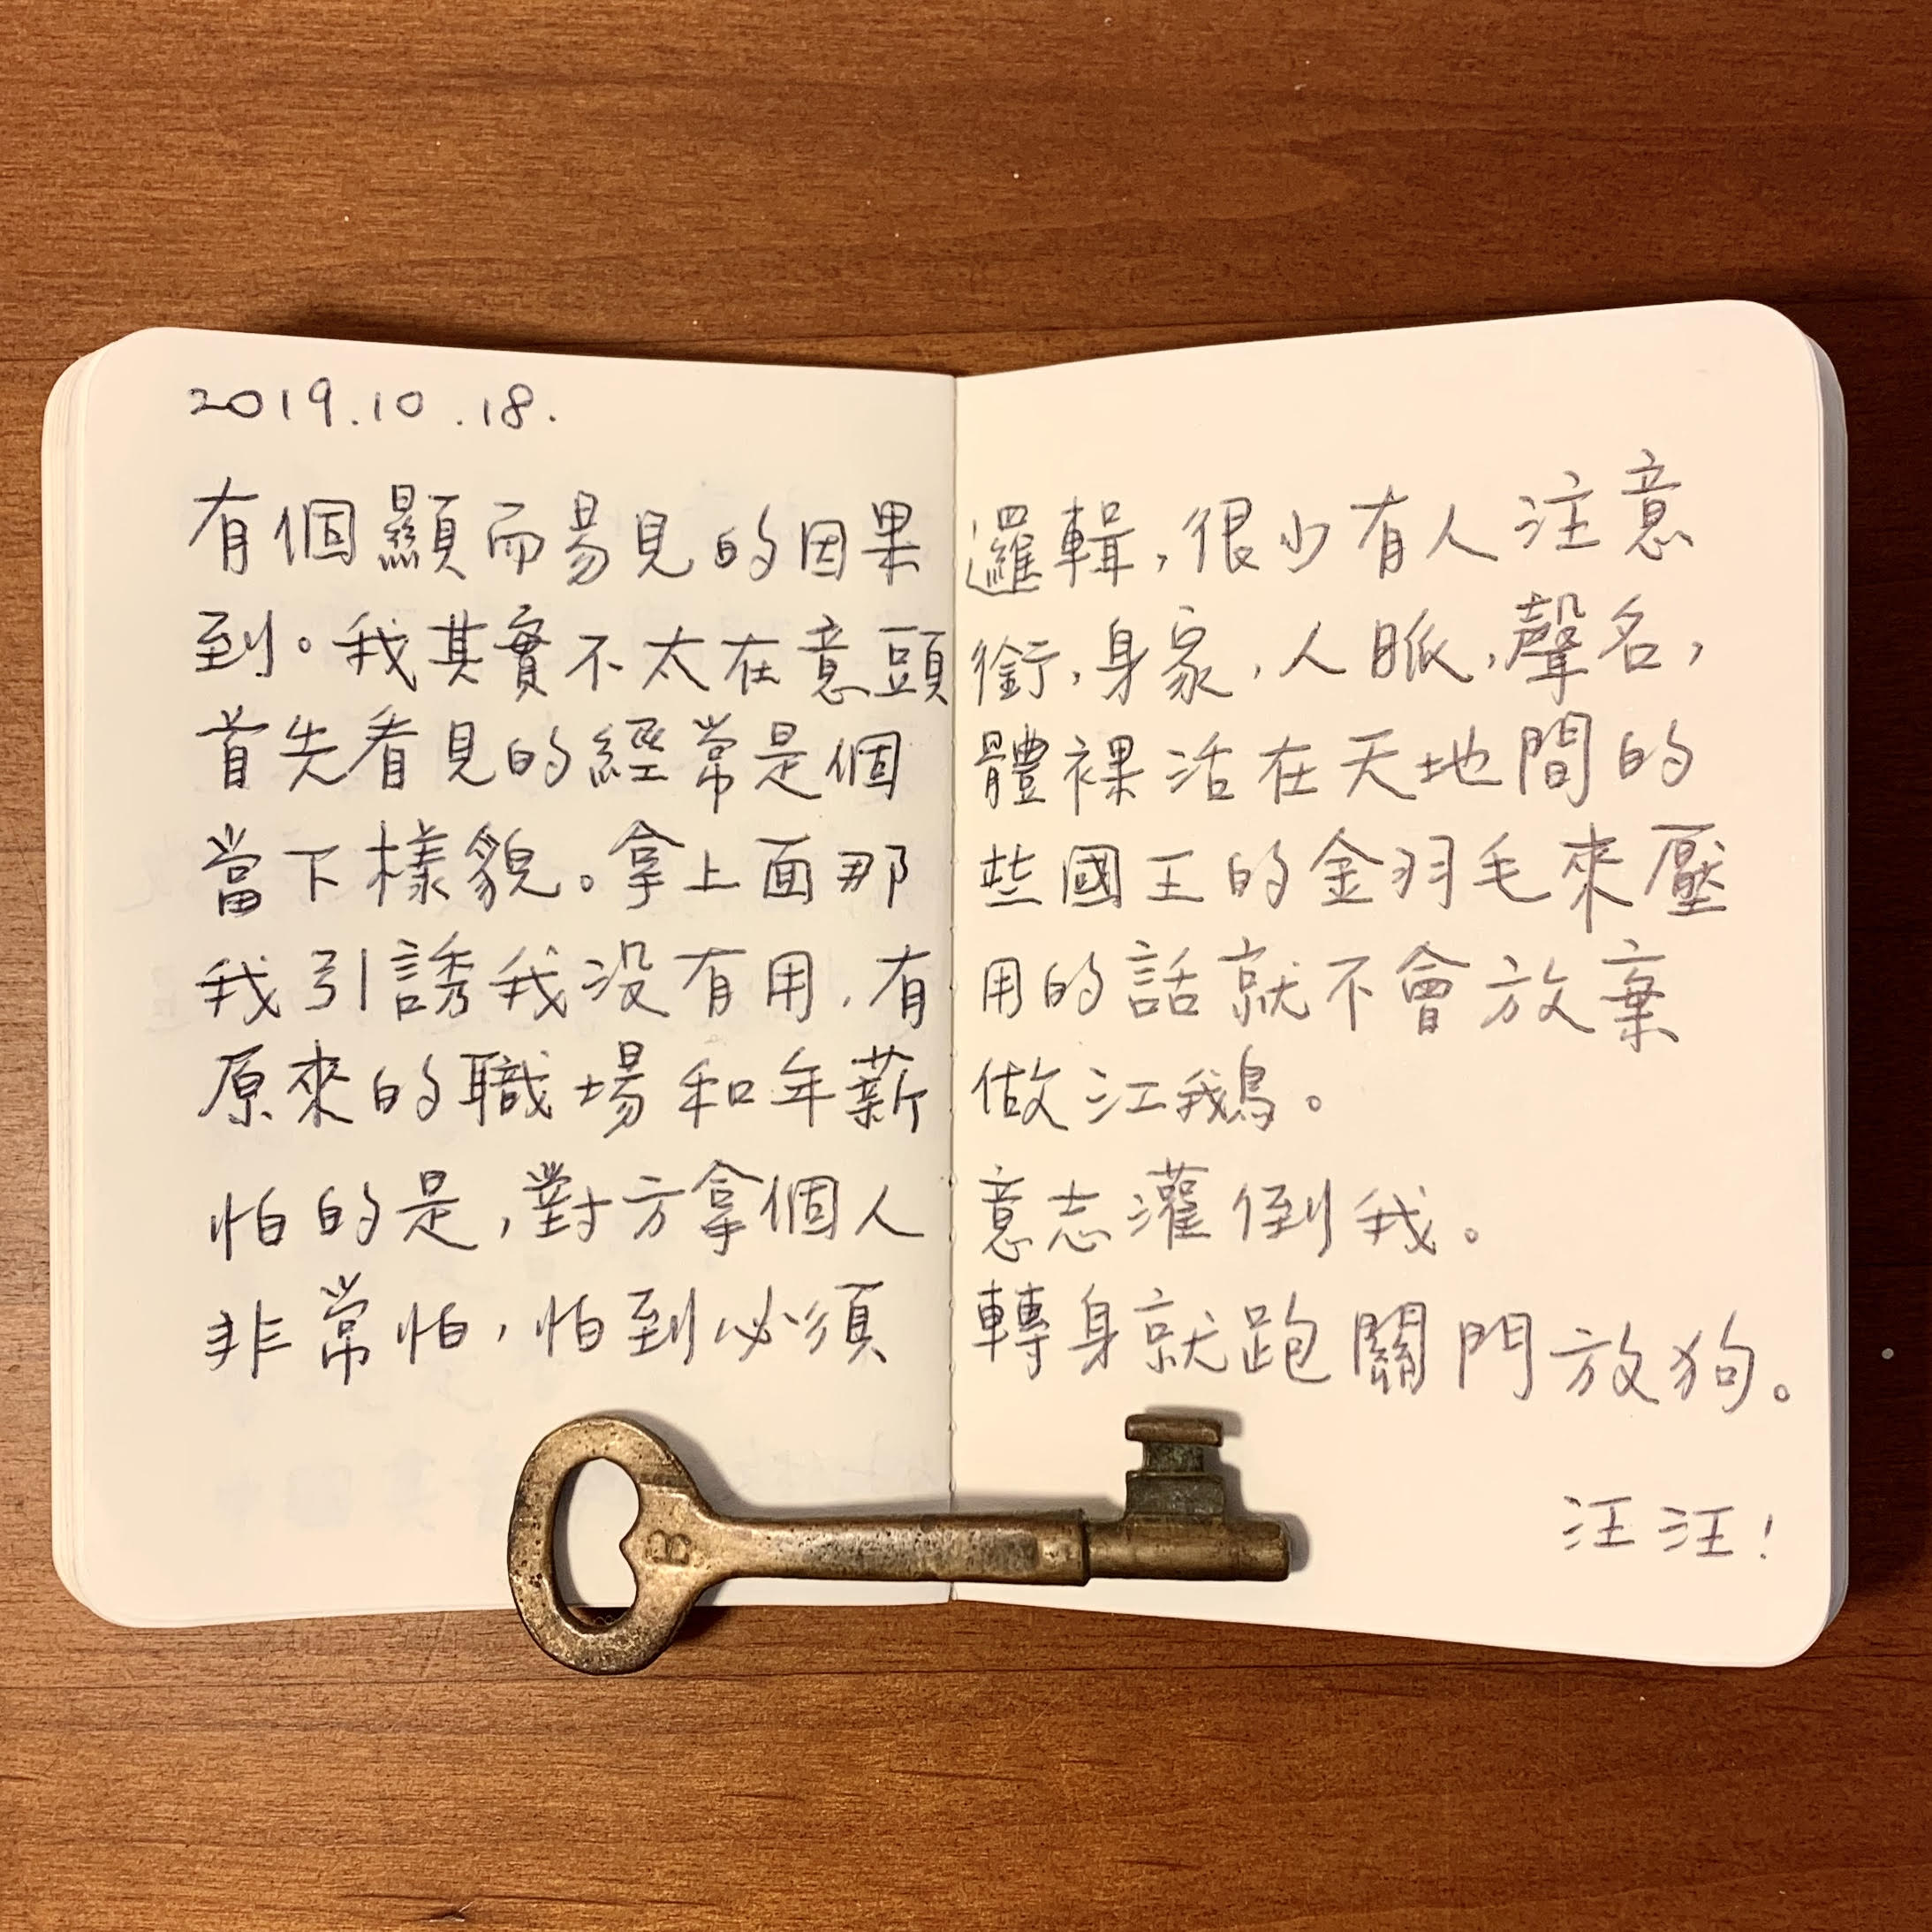 2019.10.18.
有個顯而易見的因果邏輯,很少有人注意
到。我其實不太在意頭銜,身家,人脈,聲名,
首先看見的經常是個體裸活在天地間的
當下樣貌。拿上面那些國王的金羽毛來壓
我引誘我沒有用,有用的話就不會放棄
原來的職場和年薪做江鵝。
怕的是,對方拿個人意志灌倒我。
非常怕,怕到必須轉身就跑關門放狗。
汪汪!
B